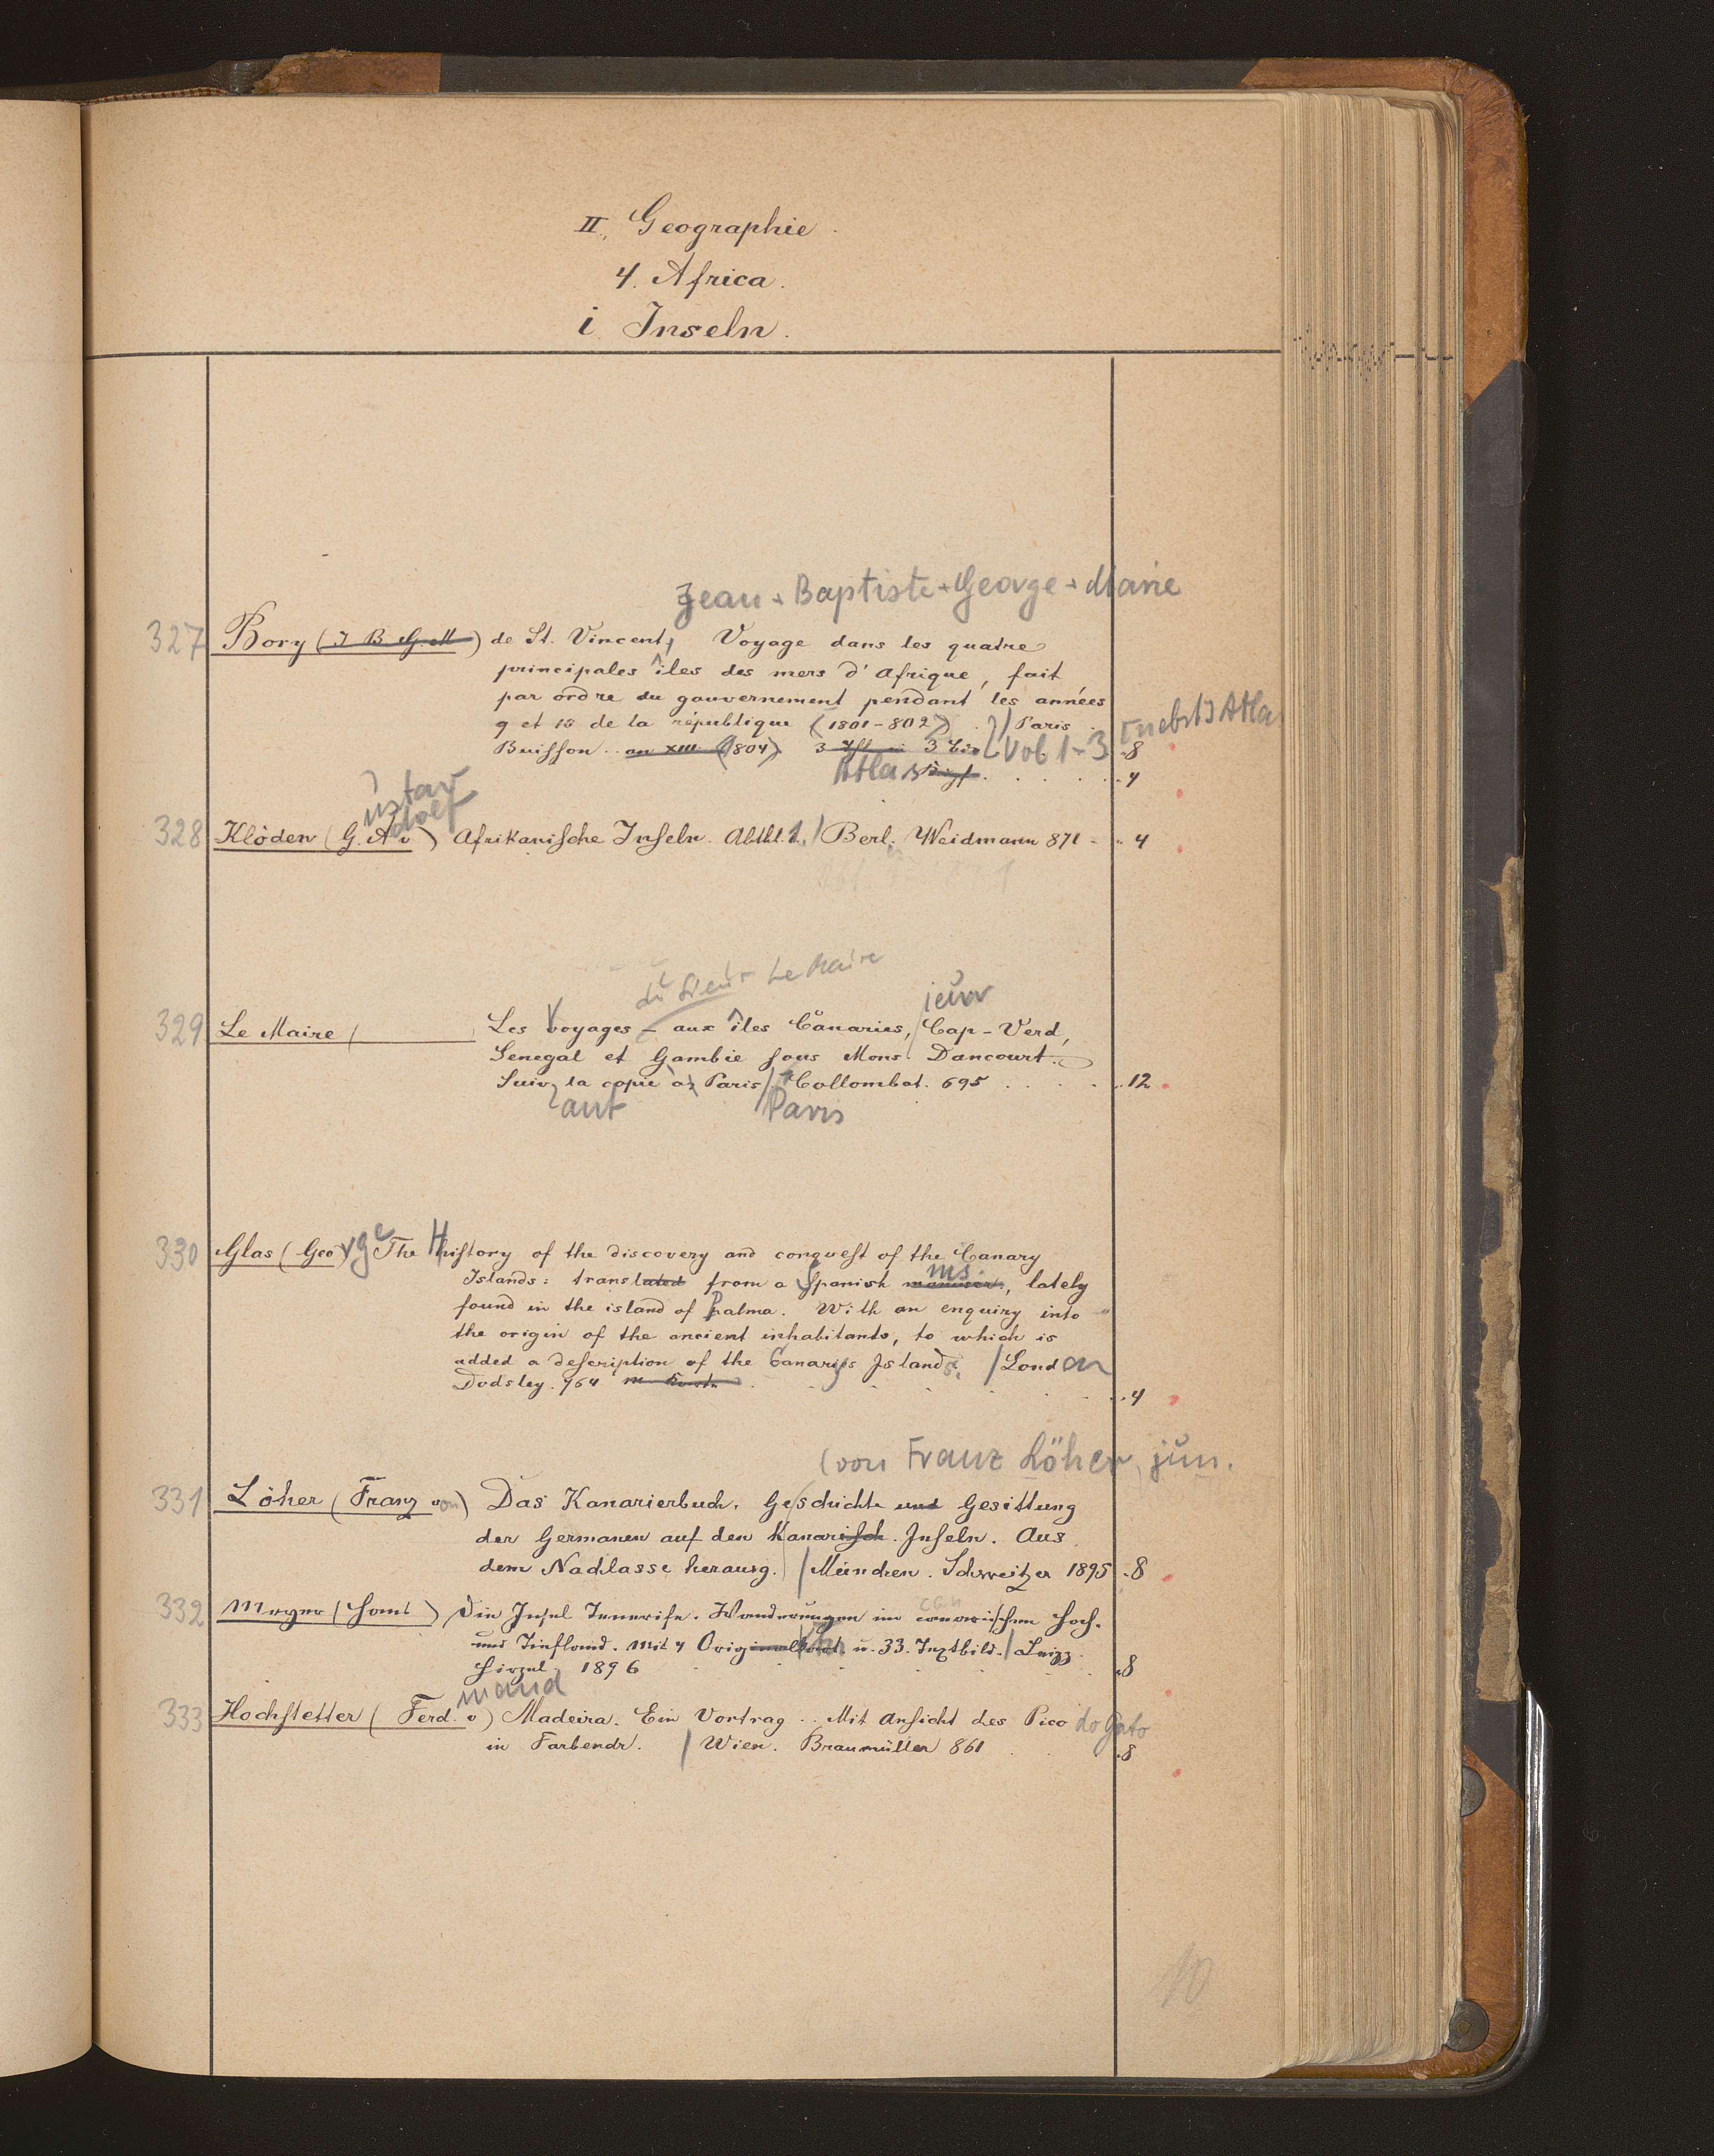 II. Geographie.
4. Africa.
i. Inseln.
Jean-Baptiste-George-Marie
327 Bory (J B G. M) de St. Vincent, Voyage dans les quatre
principales îles des mers d'Afrique, fait
par ordre du gouvernement pendant les années
9 et 10 de la république (1801-802) / Paris
[nebst] Atlas
Buisson. an XIII (1804) 3 Vol 1-3 8
Atlas 4
ustav
dolf
328 Klöden (G. A v) Afrikanische Inseln. Abthl. 1. / Berl. Weidmann 871 - 4
du Sieur Le Maire
329 Le Maire ( Les Voyages - aux îles Canaries, Cap-Verd,
Senegal et Gambie sous Mons. Dancourt.
Suiv la copie à Paris / Collombat. 695 12
ant Paris
330 Glas (George) The History of the discovery and conquest of the Canary
ms.
Islands: translated from a Spanish manuscr., lately
found in the island of Palma. With an enquiry into
the origin of the ancient inhabitants, to which is
added a description of the Canary Islands. / London
Dodsley. 764 4
(von Franz Löher, jun.
331 Löher (Franz von) Das Kanarierbuch. Geschichte und Gesittung
der Germanen auf den Kanarisch. Inseln. Aus
dem Nachlasse herausg.) / München. Schweitzer 1895 8
can
332 Meyer (Hans) Die Insel Tenerife. Wanderungen im canarischen Hoch-
und Tiefland. Mit 4 Originalkart. u. 33. Textbild. / Leipz.
Hirzel 1896 8
inand
333 Hochstetter (Ferd. v) Madeira. Ein Vortrag. Mit Ansicht des Pico do Gato
in Farbendr. / Wien. Braumüller 861 8
10